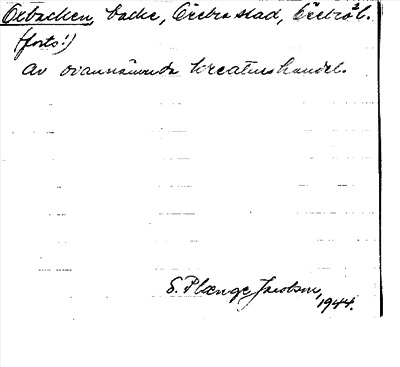 Oxbacken, backe, Örebro stad, Örebro l.
(forts.)
Av ovannämnda kreaturshandel.
S. Plænge Jacobson,
1944.